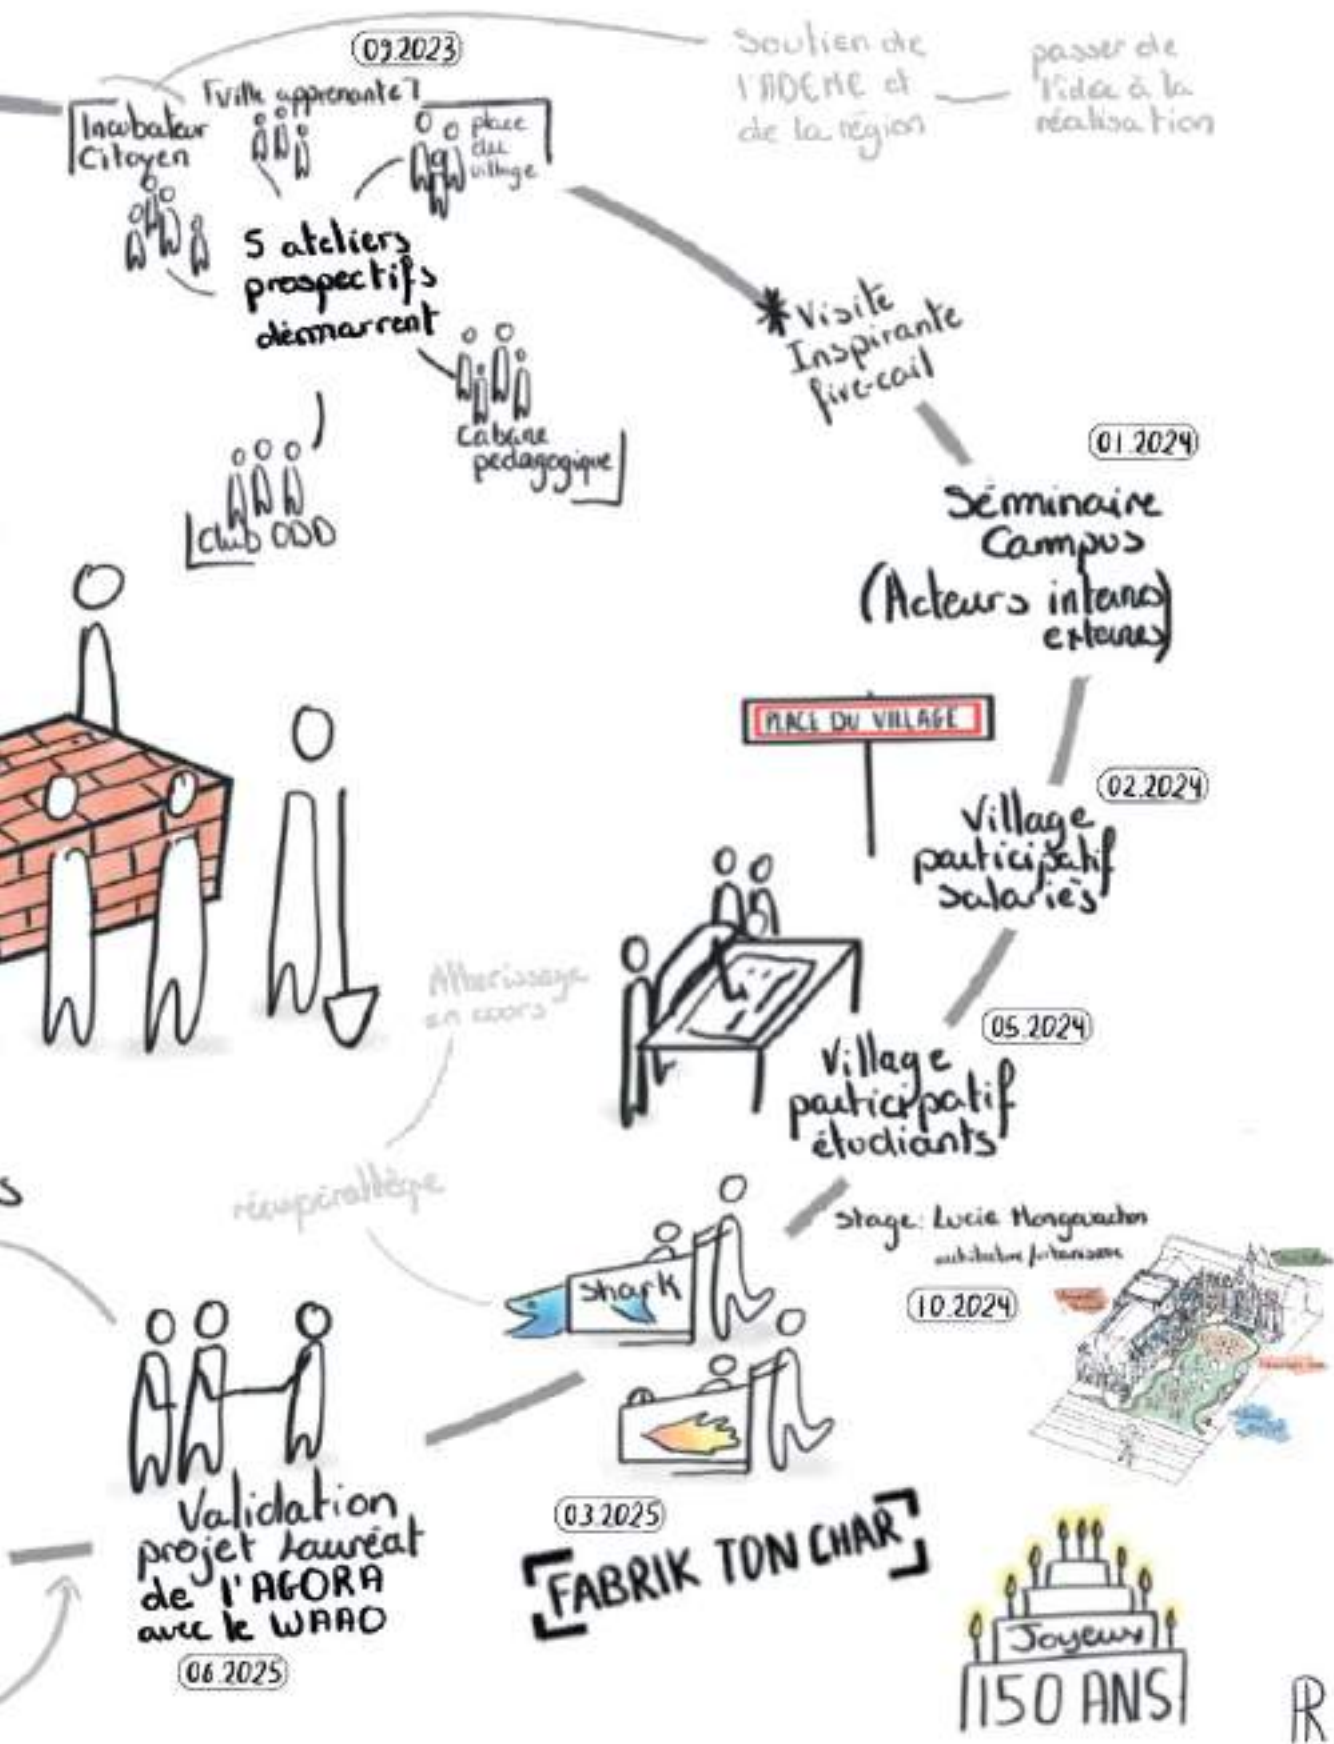 09.2023
Soutien de
l'ADEME et
de la région
passer de
l'idée à la
réalisation
Incubateur
Citoyen
ville apprenante
place
du
village
5 ateliers
prospectifs
démarrent
Cabane
pédagogique
Club ODD
* Visite
Inspirante
five-cail
01.2024
Séminaire
Campus
(Acteurs internes
externes)
PLACE DU VILLAGE
02.2024
Village
participatif
salariés
05.2024
Village
participatif
étudiants
Atterissage
en cours
récupérathèque
s
Stage: Lucie
10.2024
Shark
03.2025
FABRIK TON CHAR
Validation
projet Lauréat
de l'AGORA
avec le WAAO
06.2025
Joyeux
150 ANS